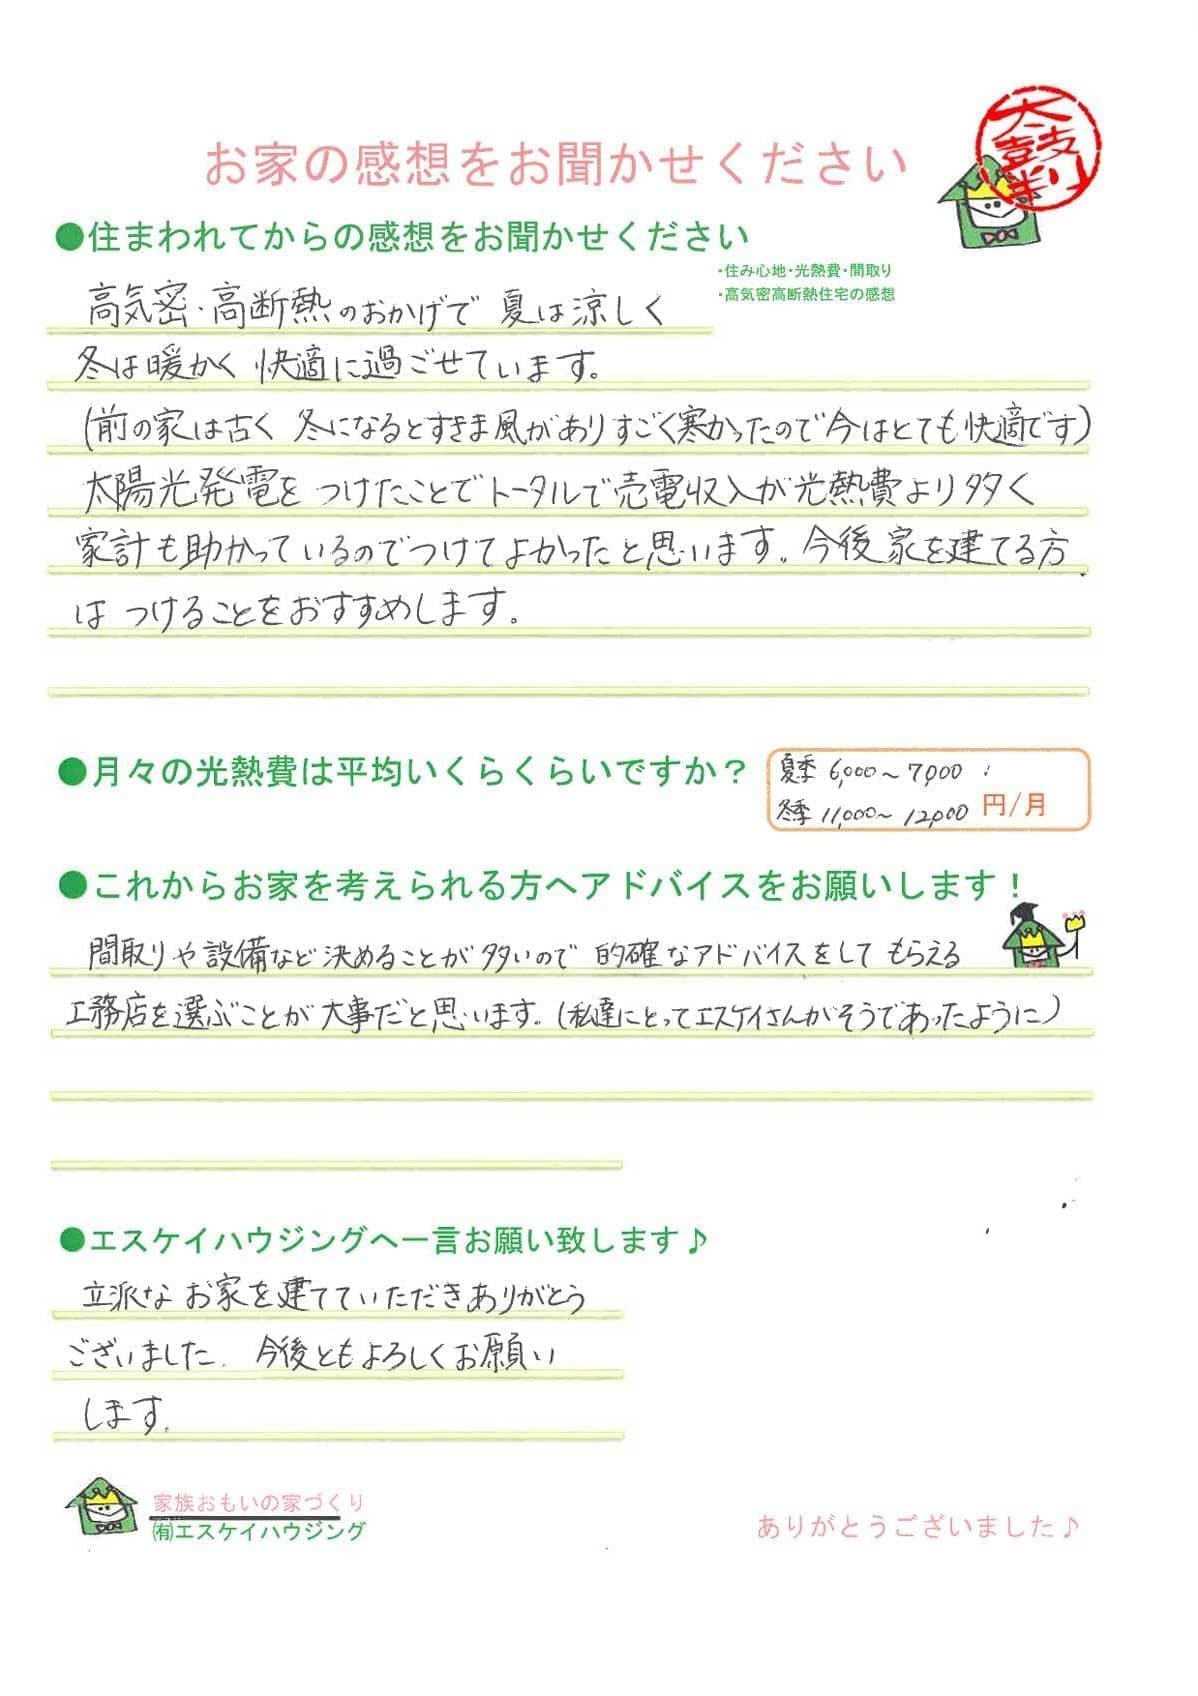 太鼓判
お家の感想をお聞かせください
●住まわれてからの感想をお聞かせください
・住み心地・光熱費・間取り
・高気密高断熱住宅の感想
高気密・高断熱のおかげで 夏は涼しく
冬は暖かく 快適に過ごせています。
(前の家は古く 冬になるとすきま風がありすごく寒かったので今はとても快適です)
太陽光発電を つけたことでトータルで売電収入が光熱費より多く
家計も助かっているのでつけてよかったと思います。今後 家を建てる方
は つけることをおすすめします。
●月々の光熱費は平均いくらくらいですか?
夏季 6,000~7,000
冬季 11,000~12,000 円/月
●これからお家を考えられる方へアドバイスをお願いします!
間取りや設備など決めることが多いので 的確なアドバイスをして もらえる
工務店を選ぶことが大事だと思います。(私達にとってエスケイさんがそうであったように)
●エスケイハウジングへ一言お願い致します♪
立派な お家を建てていただきありがとう
ございました. 今後ともよろしくお願い
します.
家族おもいの家づくり
㈲エスケイハウジング
ありがとうございました♪